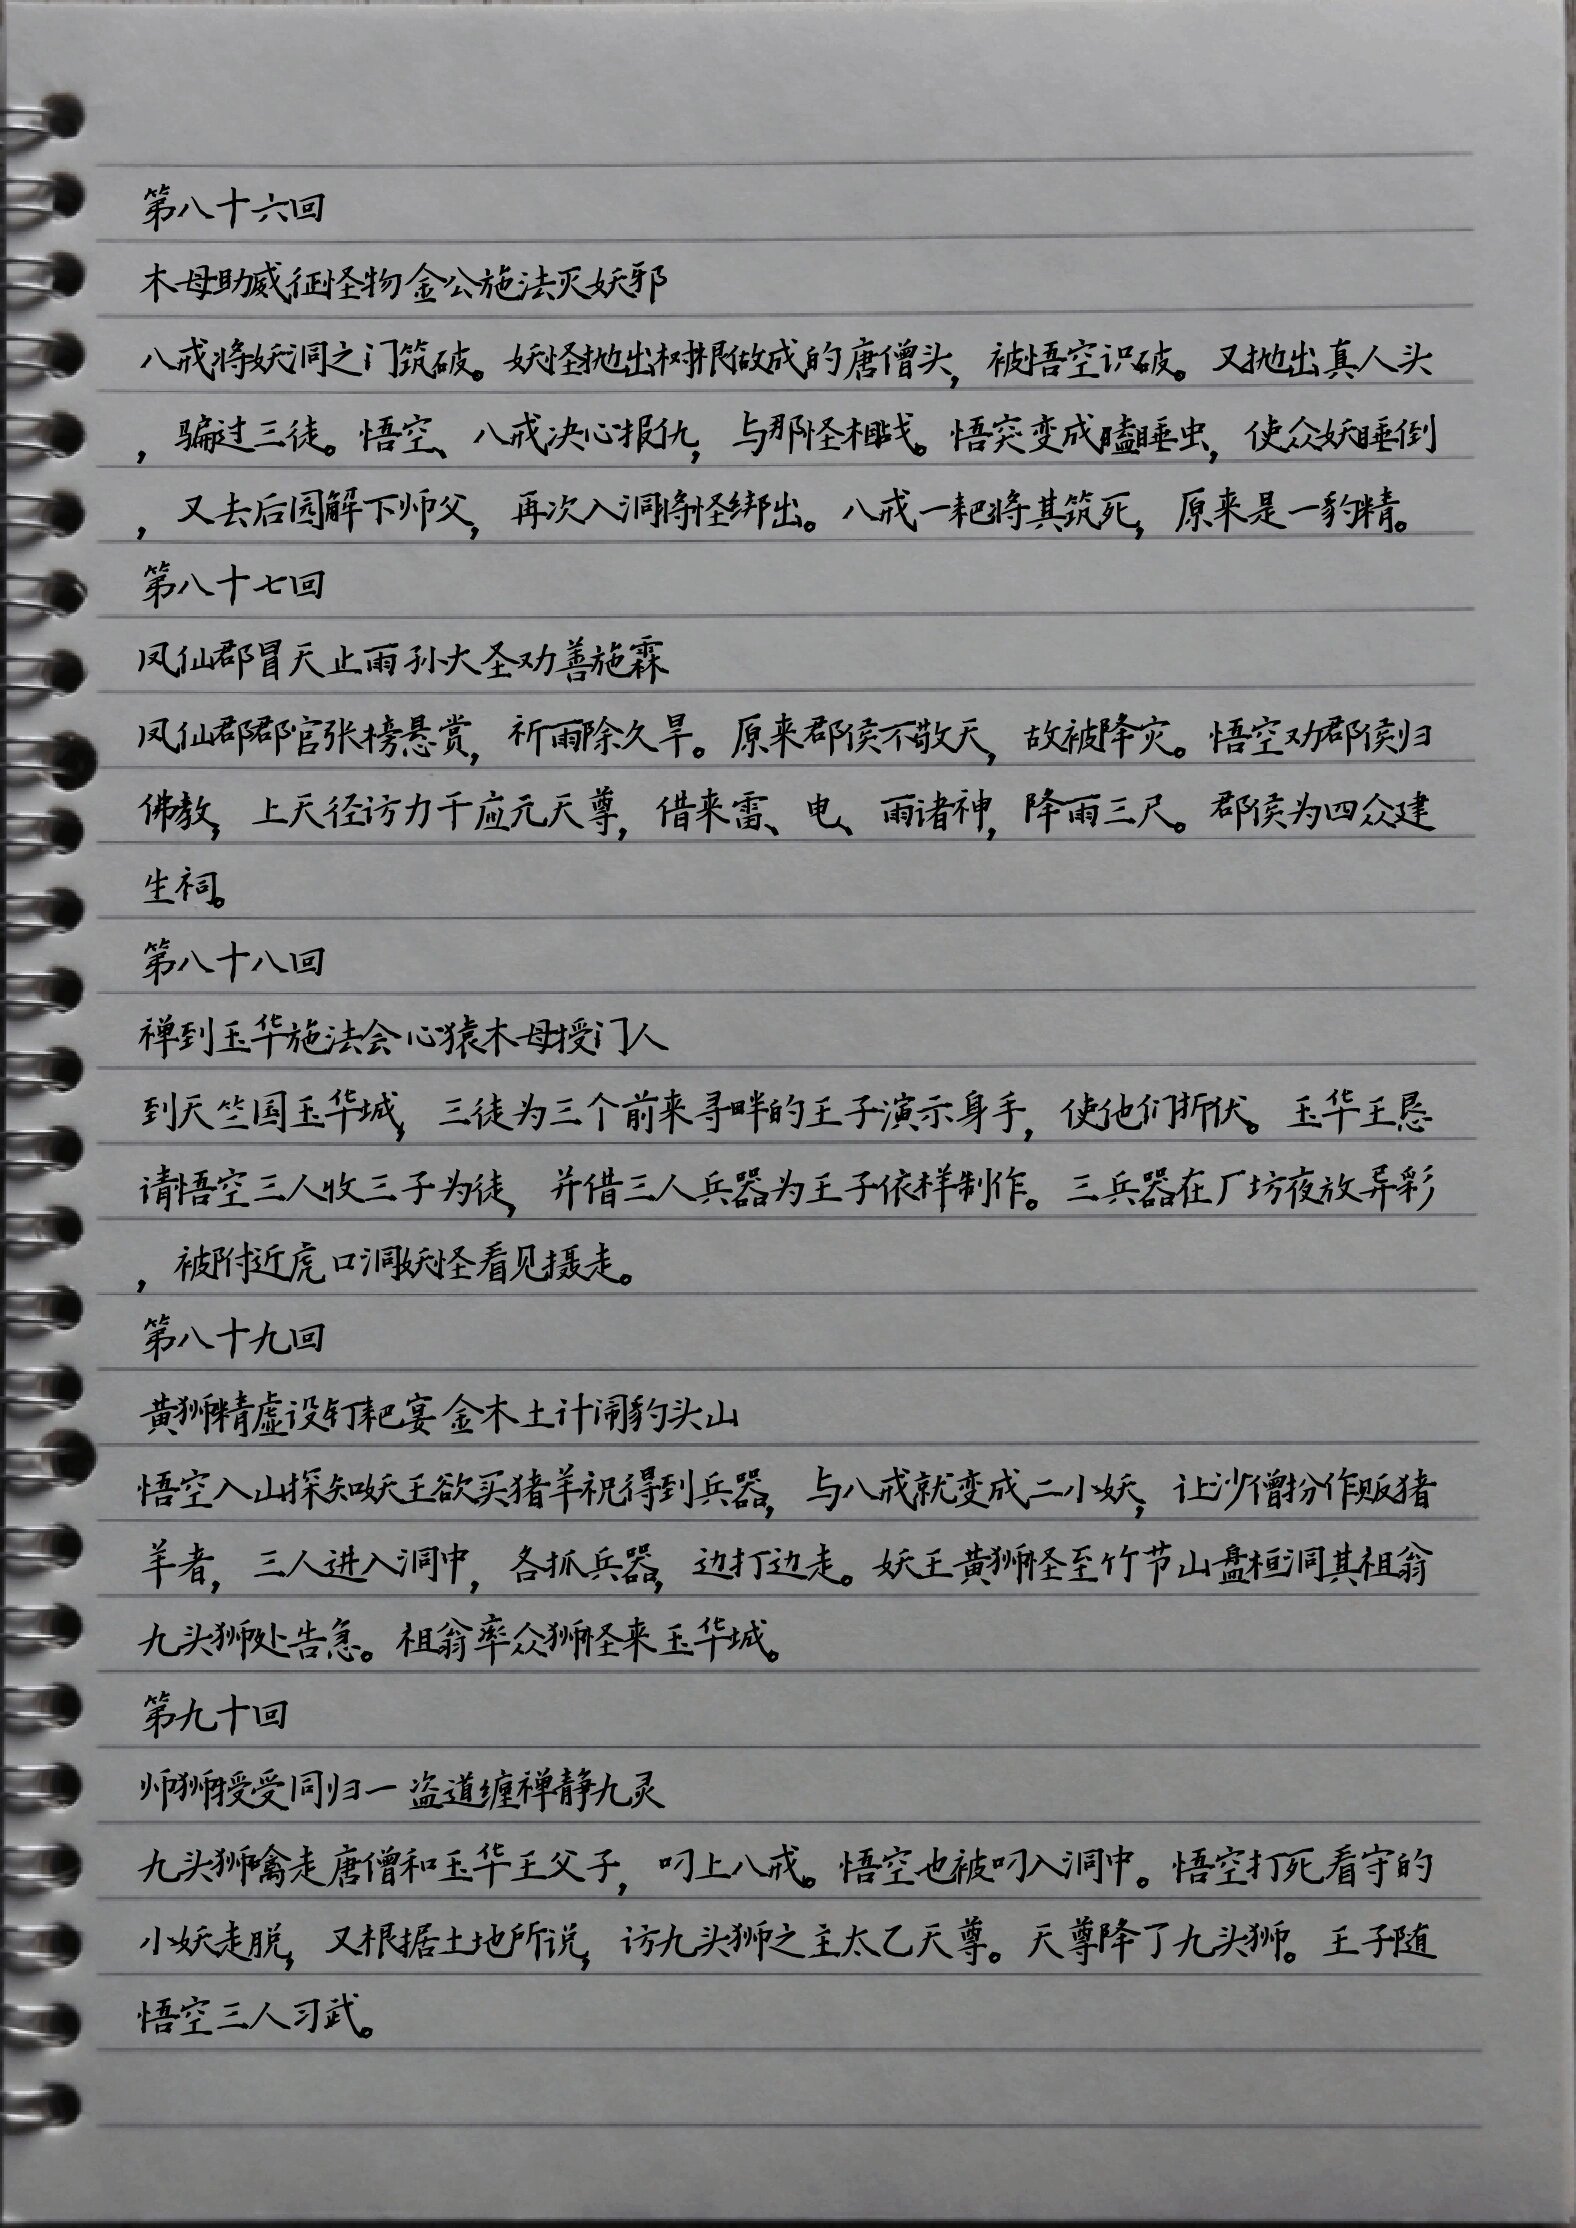 第八十六回
木母助威征怪物金公施法灭妖邪
八戒将妖洞之门筑破。妖怪抛出树根做成的唐僧头，被悟空识破。又抛出真人头
，骗过三徒。悟空、八戒决心报仇，与那怪相战。悟突变成瞌睡虫，使众妖睡倒
，又去后园解下师父，再次入洞将怪绑出。八戒一耙将其筑死，原来是一豹精。
第八十七回
凤仙郡冒天止雨孙大圣劝善施霖
凤仙郡郡官张榜悬赏，祈雨除久旱。原来郡侯不敬天，故被降灾。悟空劝郡侯归
佛教，上天径访力千应元天尊，借来雷、电、雨诸神，降雨三尺。郡侯为四众建
生祠。
第八十八回
禅到玉华施法会心猿木母授门人
到天竺国玉华城，三徒为三个前来寻畔的王子演示身手，使他们折伏。玉华王恳
请悟空三人收三子为徒，并借三人兵器为王子依样制作。三兵器在厂坊夜放异彩
，被附近虎口洞妖怪看见摄走。
第八十九回
黄狮精虚设钉耙宴金木土计闹豹头山
悟空入山探知妖王欲买猪羊祝得到兵器，与八戒就变成二小妖，让沙僧扮作贩猪
羊者，三人进入洞中，各抓兵器，边打边走。妖王黄狮怪至竹节山盘桓洞其祖翁
九头狮处告急。祖翁率众狮怪来玉华城。
第九十回
师狮授受同归一盗道缠禅静九灵
九头狮擒走唐僧和玉华王父子，叼上八戒。悟空也被叼入洞中。悟空打死看守的
小妖走脱，又根据土地所说，访九头狮之主太乙天尊。天尊降了九头狮。王子随
悟空三人习武。